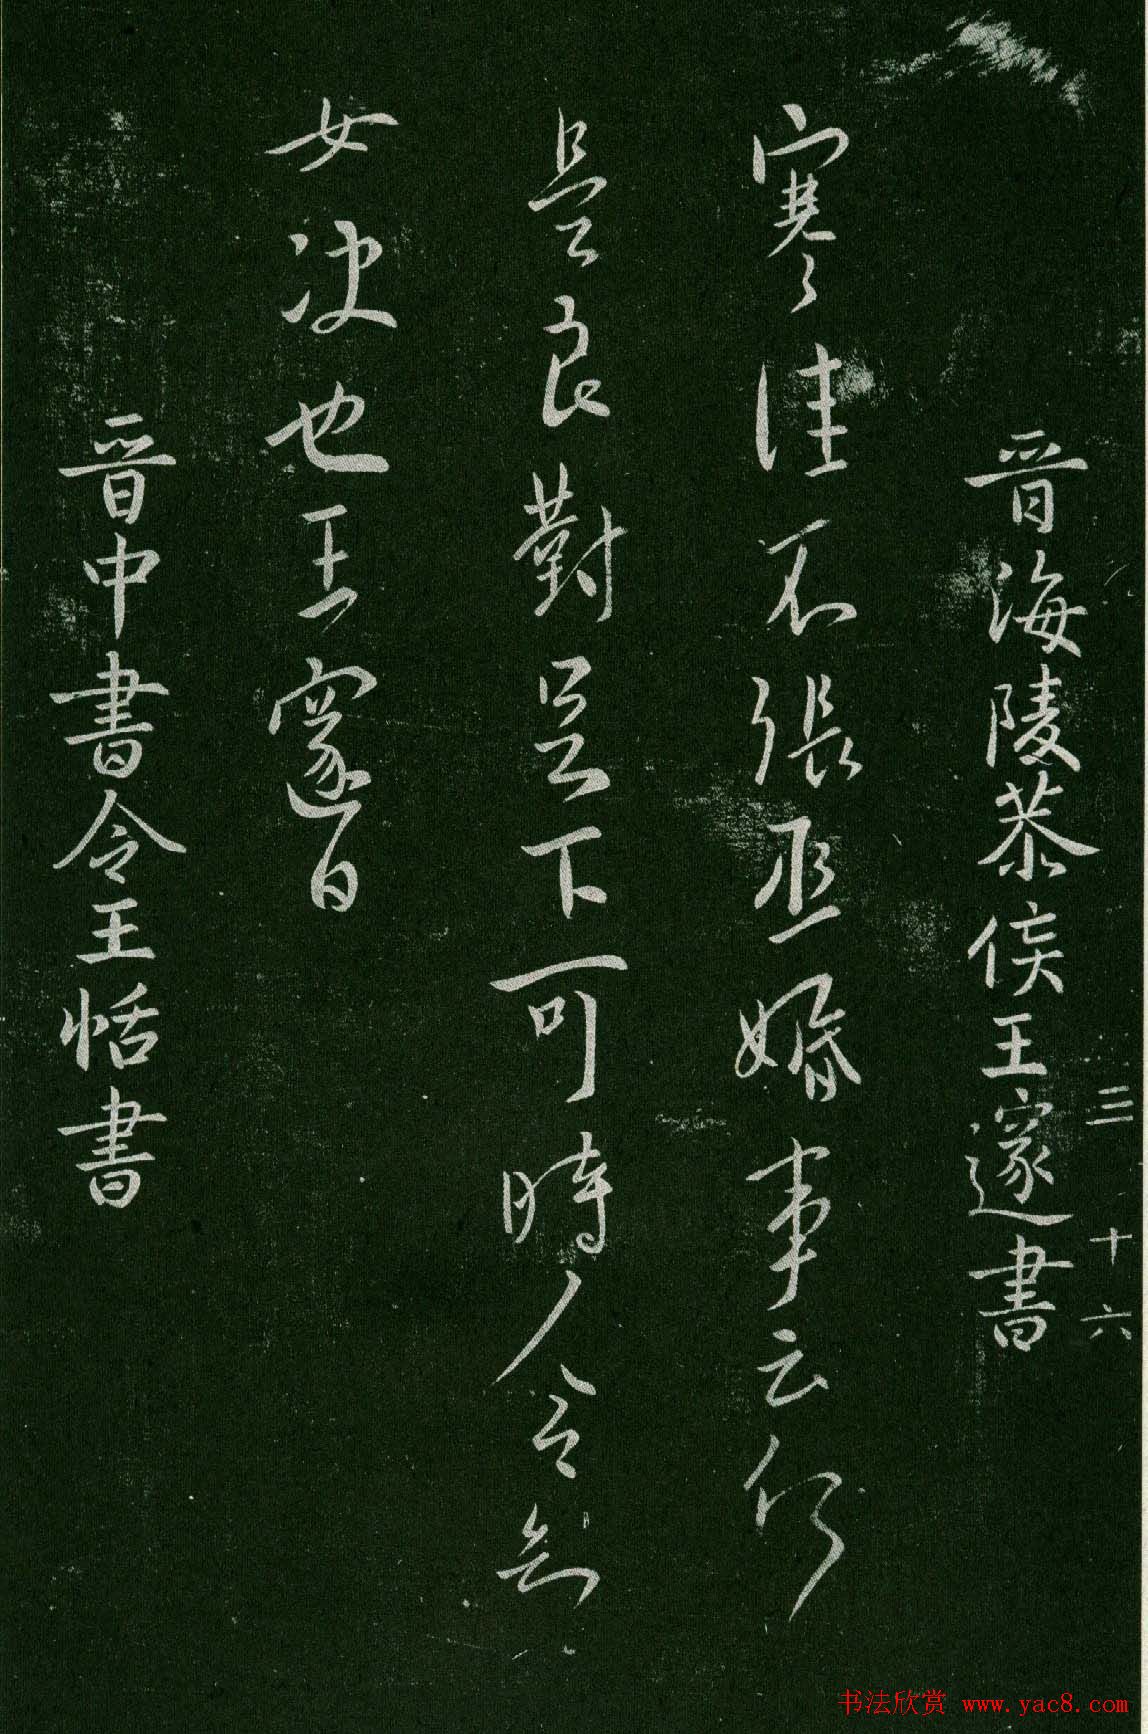 晉海陵恭侯王邃書
三 十六
寒佳不張丞婚事云何
是良對足下可時令知
女决也王邃白
晉中書令王恬書
书法欣赏 www.yac8.com